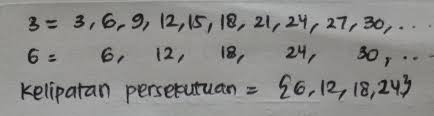 3 = 3, 6, 9, 12, 15, 18, 21, 24, 27, 30, ...
6 = 6, 12, 18, 24, 30, ...
Kelipatan persekutuan = {6, 12, 18, 24}